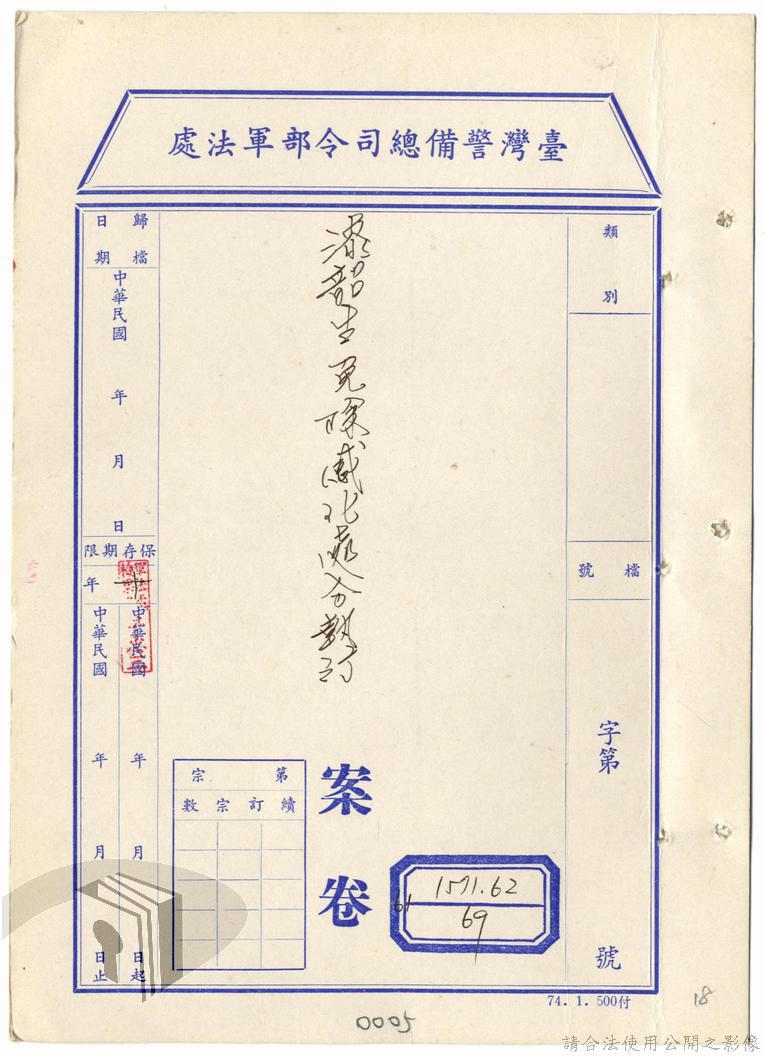 臺灣警備總司令部軍法處
類別
檔號
字第
號
韶生免除感化處分執行
案卷
1571.62
61
69
第宗
續訂宗數
歸檔日期
中華民國 年 月 日
保存期限
年
中華民國 年 月 日起
中華民國 年 月 日止
74. 1. 500付
0005
18
請合法使用公開之影像